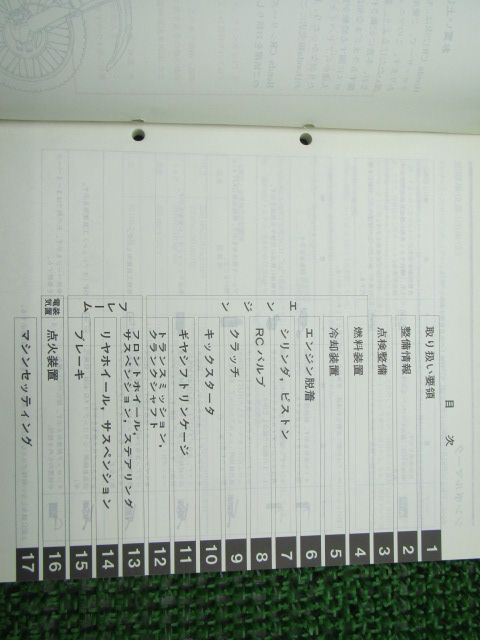 目次
取り扱い要領 1
整備情報 2
点検整備 3
エンジン
燃料装置 4
冷却装置 5
エンジン脱着 6
シリンダ，ピストン 7
RCバルブ 8
クラッチ 9
キックスタータ 10
ギヤシフトリンケージ 11
トランスミッション，
クランクシャフト 12
フレーム
フロントホイール，
サスペンション，ステアリング 13
リヤホイール，サスペンション 14
ブレーキ 15
電装
装置
点火装置 16
マシンセッティング 17